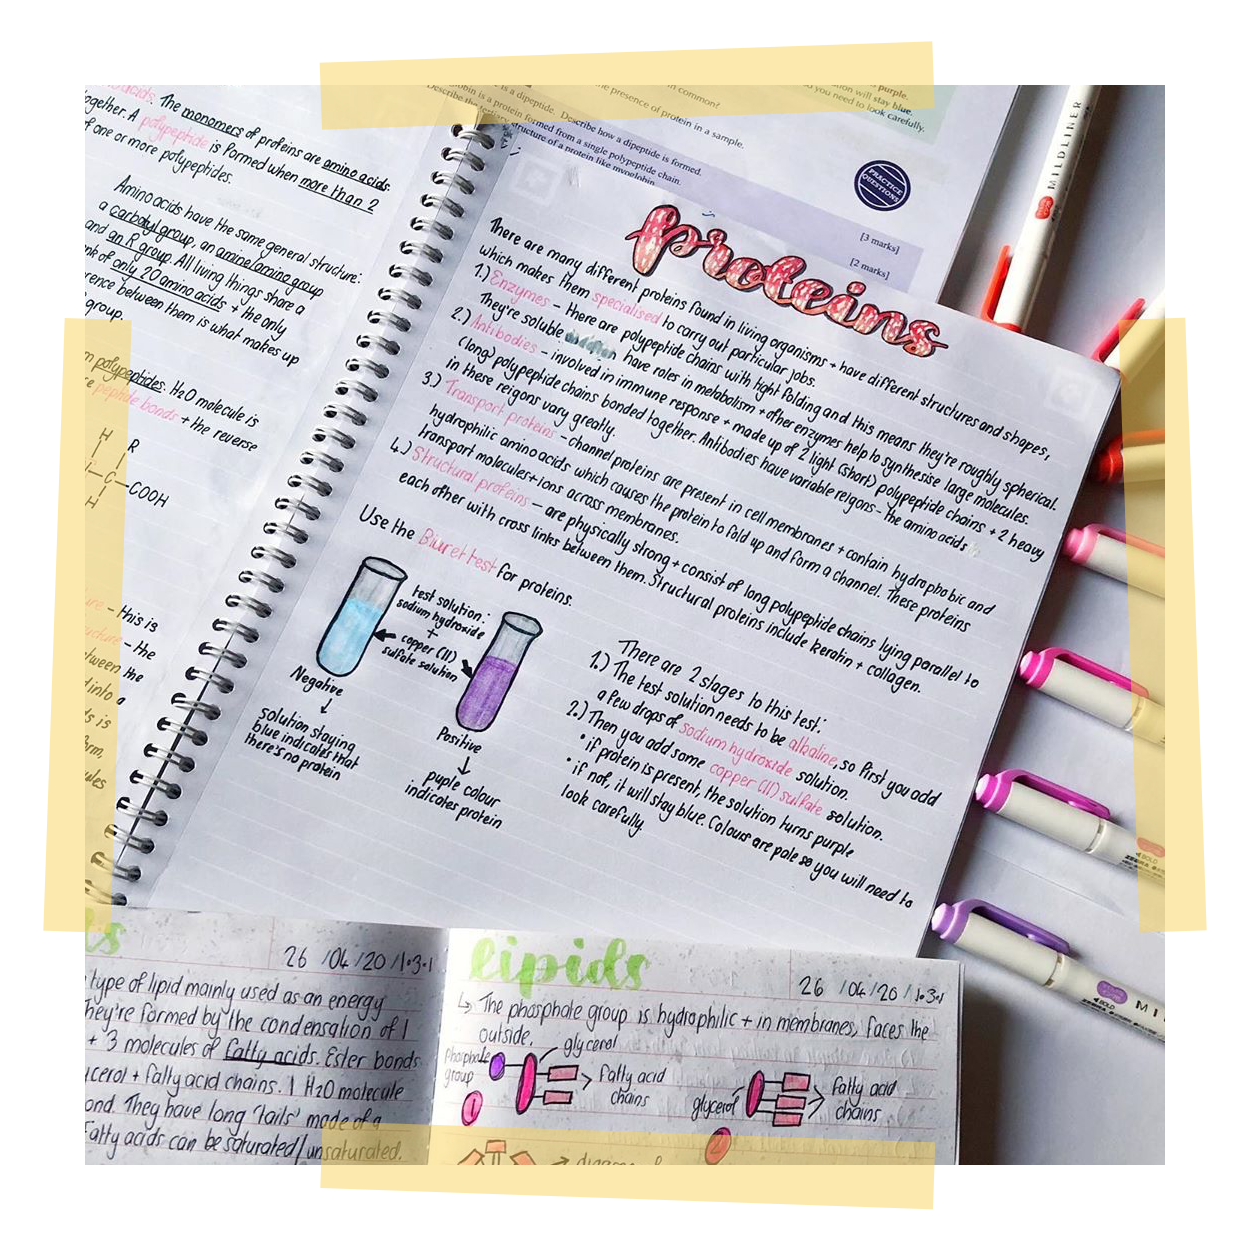 acids. The monomers of proteins are amine acids.
together. A polypeptide is formed when more than 2
of one or more polypeptides.
Amino acids have the same general structure:
a carboxyl group, an amine/amino group
and an R group. All living things share a
of only 20 amino acids + the only
between them is what makes up
group.
polypeptides. H2O molecule is
peptide bonds + the reverse
H
R
C
COOH
H
- this is
- the
between the
into a
is
is a dipeptide. Describe how a dipeptide is formed.
is a protein formed from a single polypeptide chain.
structure of a protein like myoglobin.
the presence of protein in a sample.
in common?
purple.
will stay blue.
you need to look carefully.
PRACTICE
QUESTIONS
[3 marks]
[2 marks]
proteins
There are many different proteins found in living organisms + have different structures and shapes,
which makes them specialised to carry out particular jobs.
1.) Enzymes - there are polypeptide chains with tight folding and this means they're roughly spherical.
They're soluble have roles in metabolism + other enzymes help to synthesise large molecules.
2.) Antibodies - involved in immune response + made up of 2 light (short) polypeptide chains + 2 heavy
(long) polypeptide chains bonded together. Antibodies have variable reigons - the amino acids
in these reigons vary greatly.
3.) Transport proteins - channel proteins are present in cell membranes + contain hydrophobic and
hydrophilic amino acids which causes the protein to fold up and form a channel. These proteins
transport molecules + ions across membranes.
4.) Structural proteins - are physically strong + consist of long polypeptide chains lying parallel to
each other with cross links between them. Structural proteins include keratin + collagen.
Use the Biuret test for proteins.
test solution:
sodium hydroxide
+
copper (II)
sulfate solution
Negative
solution staying
blue indicates that
there's no protein
Positive
puple colour
indicates protein
There are 2 stages to this test:
1.) The test solution needs to be albaline, so first you add
a few drops of sodium hydroxide solution.
2.) Then you add some copper (II) sulfate solution.
• if protein is present, the solution turns purple
• if not, it will stay blue. Colours are pale so you will need to
look carefully.
MILDLINER
BOLD
BOLD
26 /04 /20 /1.3.1
type of lipid mainly used as an energy
They're formed by the condensation of 1
+ 3 molecules of fatty acids. Ester bonds
glycerol + fatty acid chains. 1 H2O molecule
They have long 'tails' made of a
Fatty acids can be saturated/unsaturated.
lipids
26 /04/20 /1.3.1
↳ The phosphate group is hydrophilic + in membranes, faces the
outside.
phosphate
group
glycerol
fatty acid
chains
1
glycerol
fatty acid
chains
2